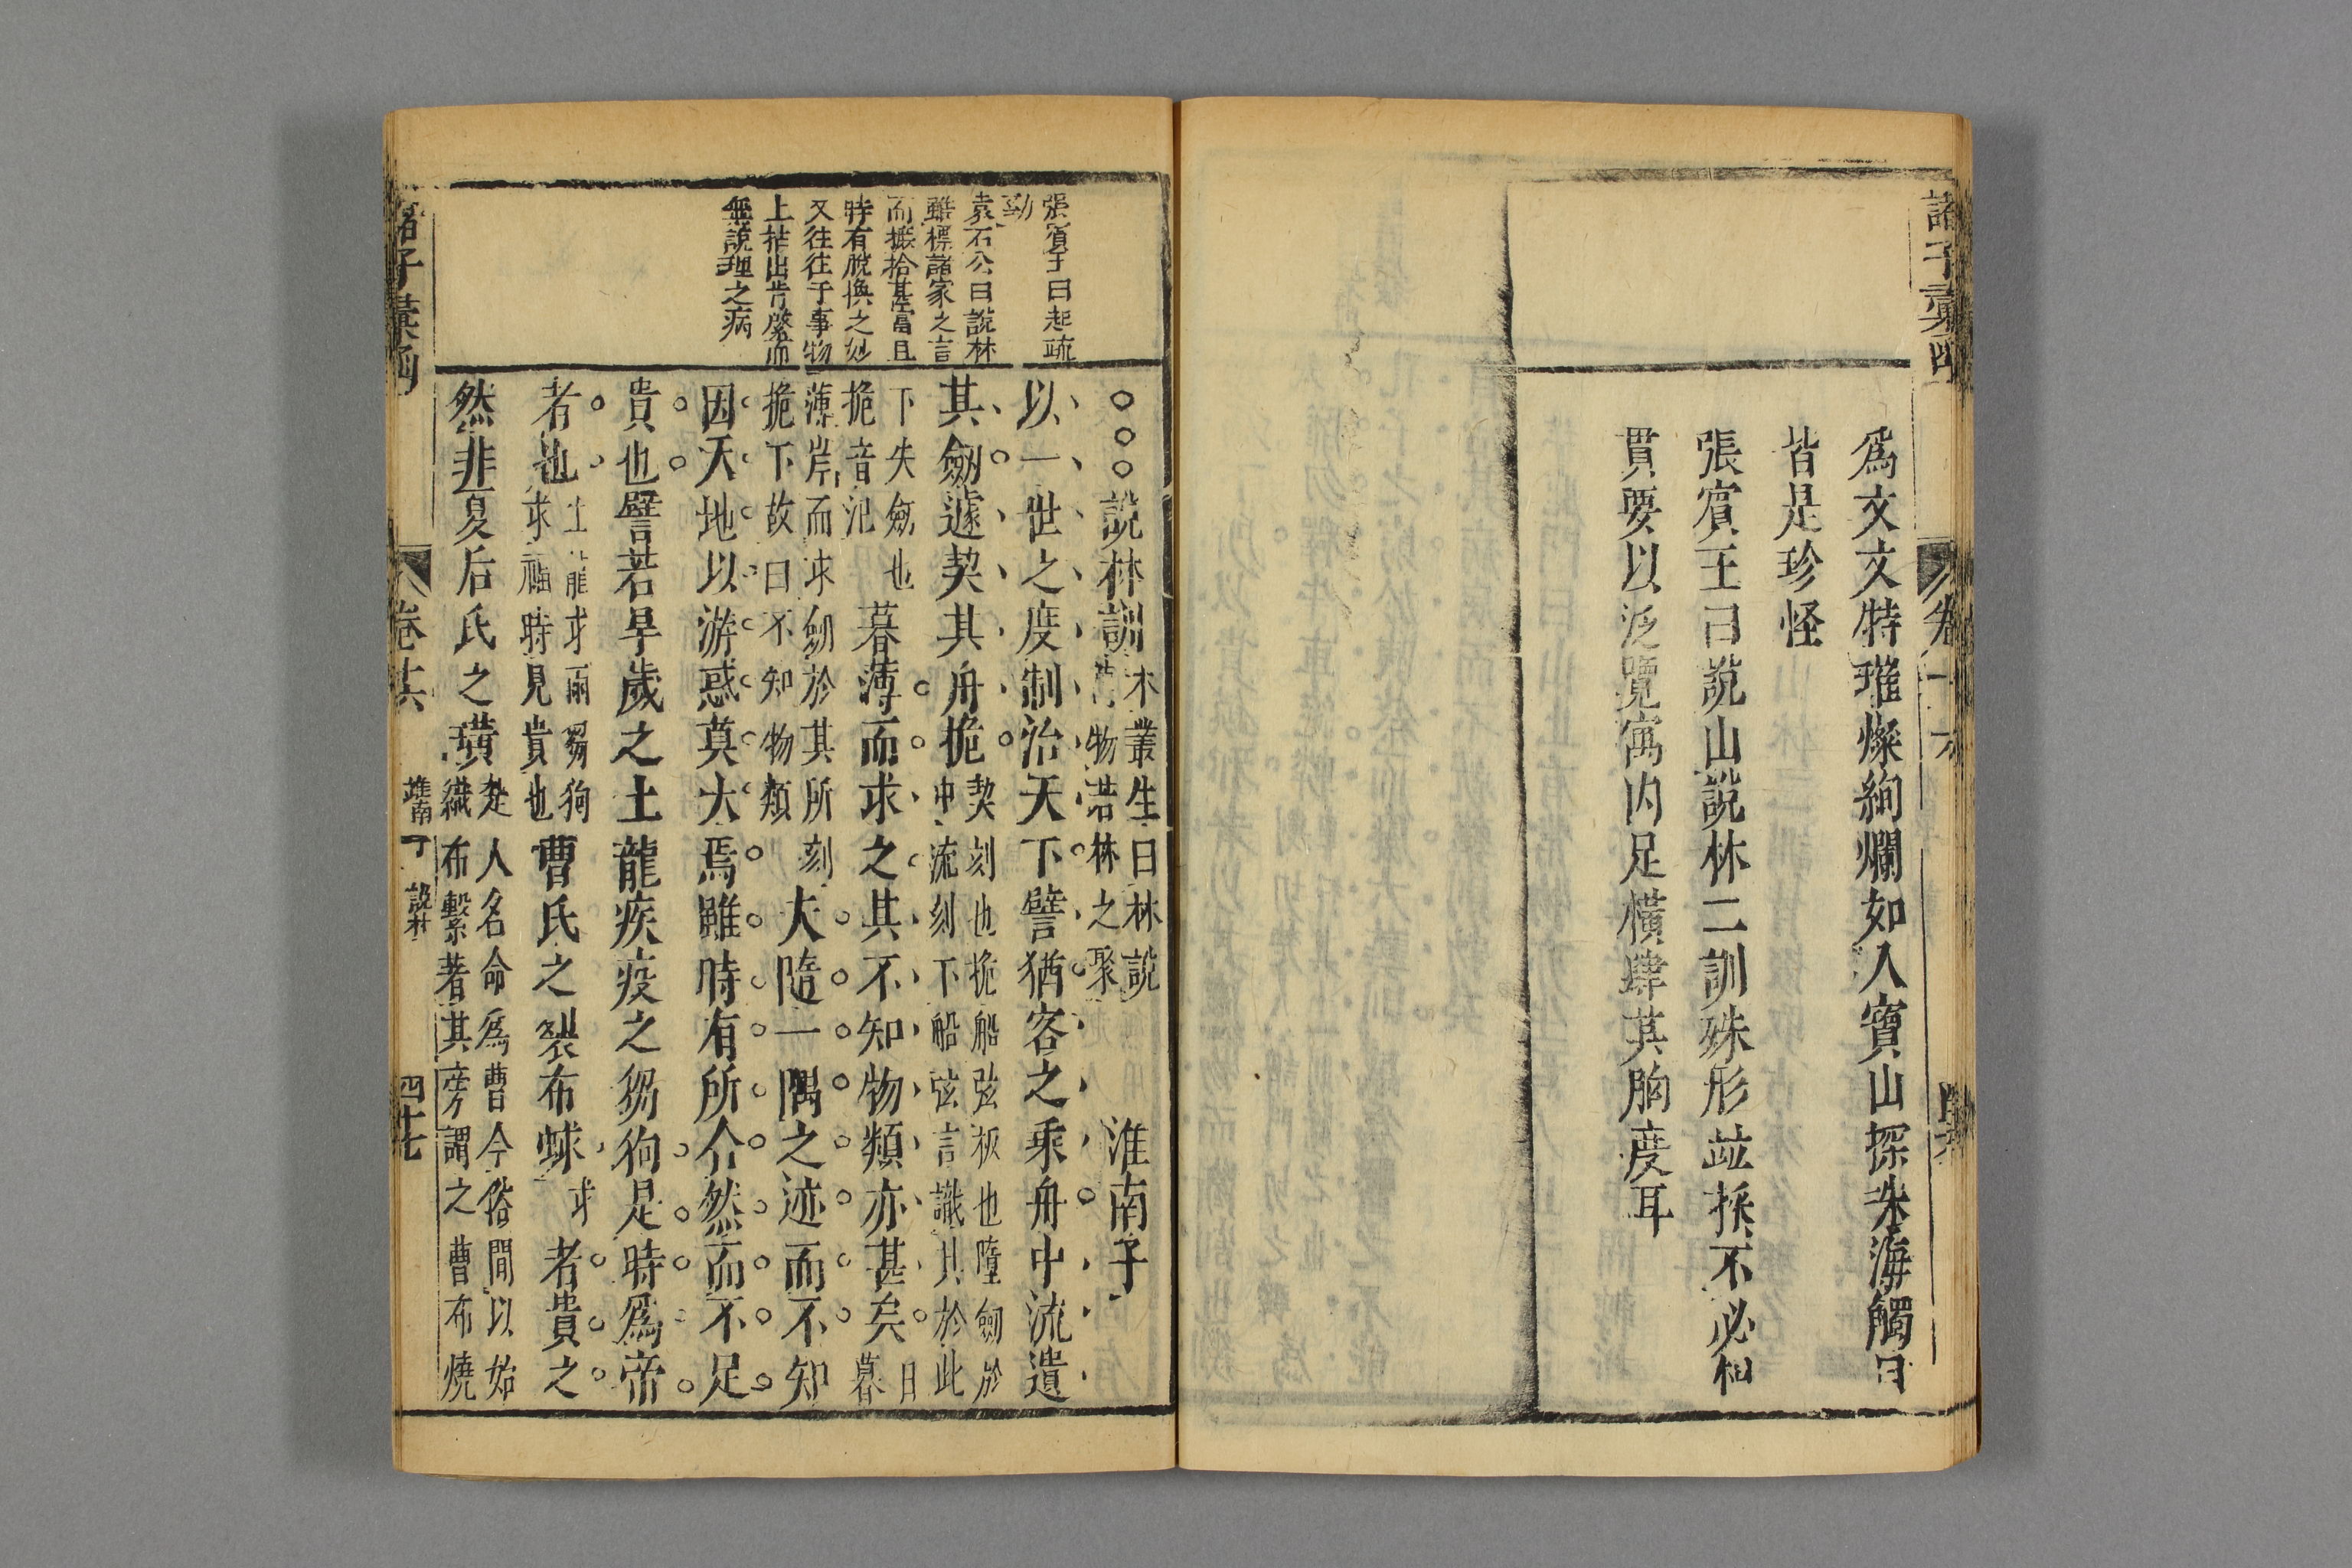 諸子彙函
卷十六
爲文文特璀燦絢爛如入寶山探珠海觸目
皆是珍怪
張賓王曰說山說林二訓殊形竝採不必相
貫要以泛覽寓內足橫肆其胸度耳
張賓王曰起疏
勁
袁石公曰說林
雖標諸家之言
而摭拾甚富且
時有脫換之妙
又往往于事物
上拈出肯綮而
無說理之病
說林訓
木叢生曰林說
萬物若林之聚
淮南子
以一世之度制治天下譬猶客之乘舟中流遺
其劒遽契其舟桅
契刻也桅船弦板也墮劒於
中流刻下船弦言識其於此
下失劒也
桅音氾
暮薄而求之其不知物類亦甚矣
日
暮
薄岸而求劒於其所刻
桅下故曰不知物類
夫隨一隅之迹而不知
因天地以游惑莫大焉雖時有所合然而不足
貴也譬若旱歲之土龍疾疫之芻狗是時爲帝
者也
土龍求雨芻狗
求福時見貴也
曹氏之裂布蛷
求
者貴之
然非夏后氏之璜
楚人名命爲曹今俗間以始
織布繫著其旁謂之曹布燒
諸子彙函
卷十六
淮南子
說林
四十七